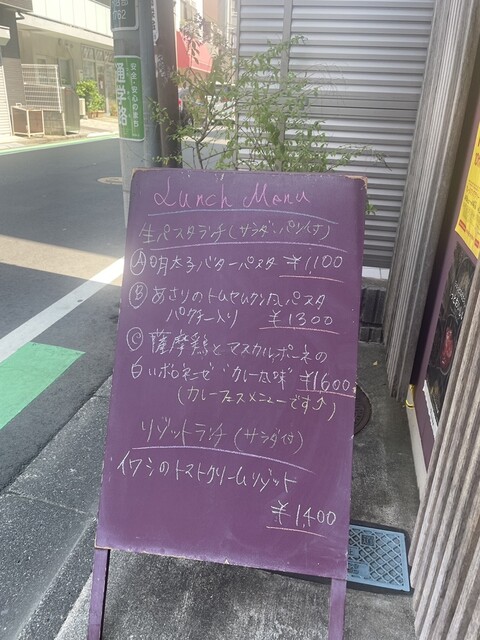 通学路
Lunch Menu
生パスタランチ(サラダ・パン付)
Ⓐ明太子バターパスタ ¥1,100
Ⓑあさりのトムヤムクン風パスタ
パクチー入り ¥1300
Ⓒ薩摩鶏とマスカルポーネの
白いボロネーゼ"カレー風味" ¥1600
(カレーフェスメニューです⤴)
リゾットランチ(サラダ付)
イワシのトマトクリームリゾット
¥1,400